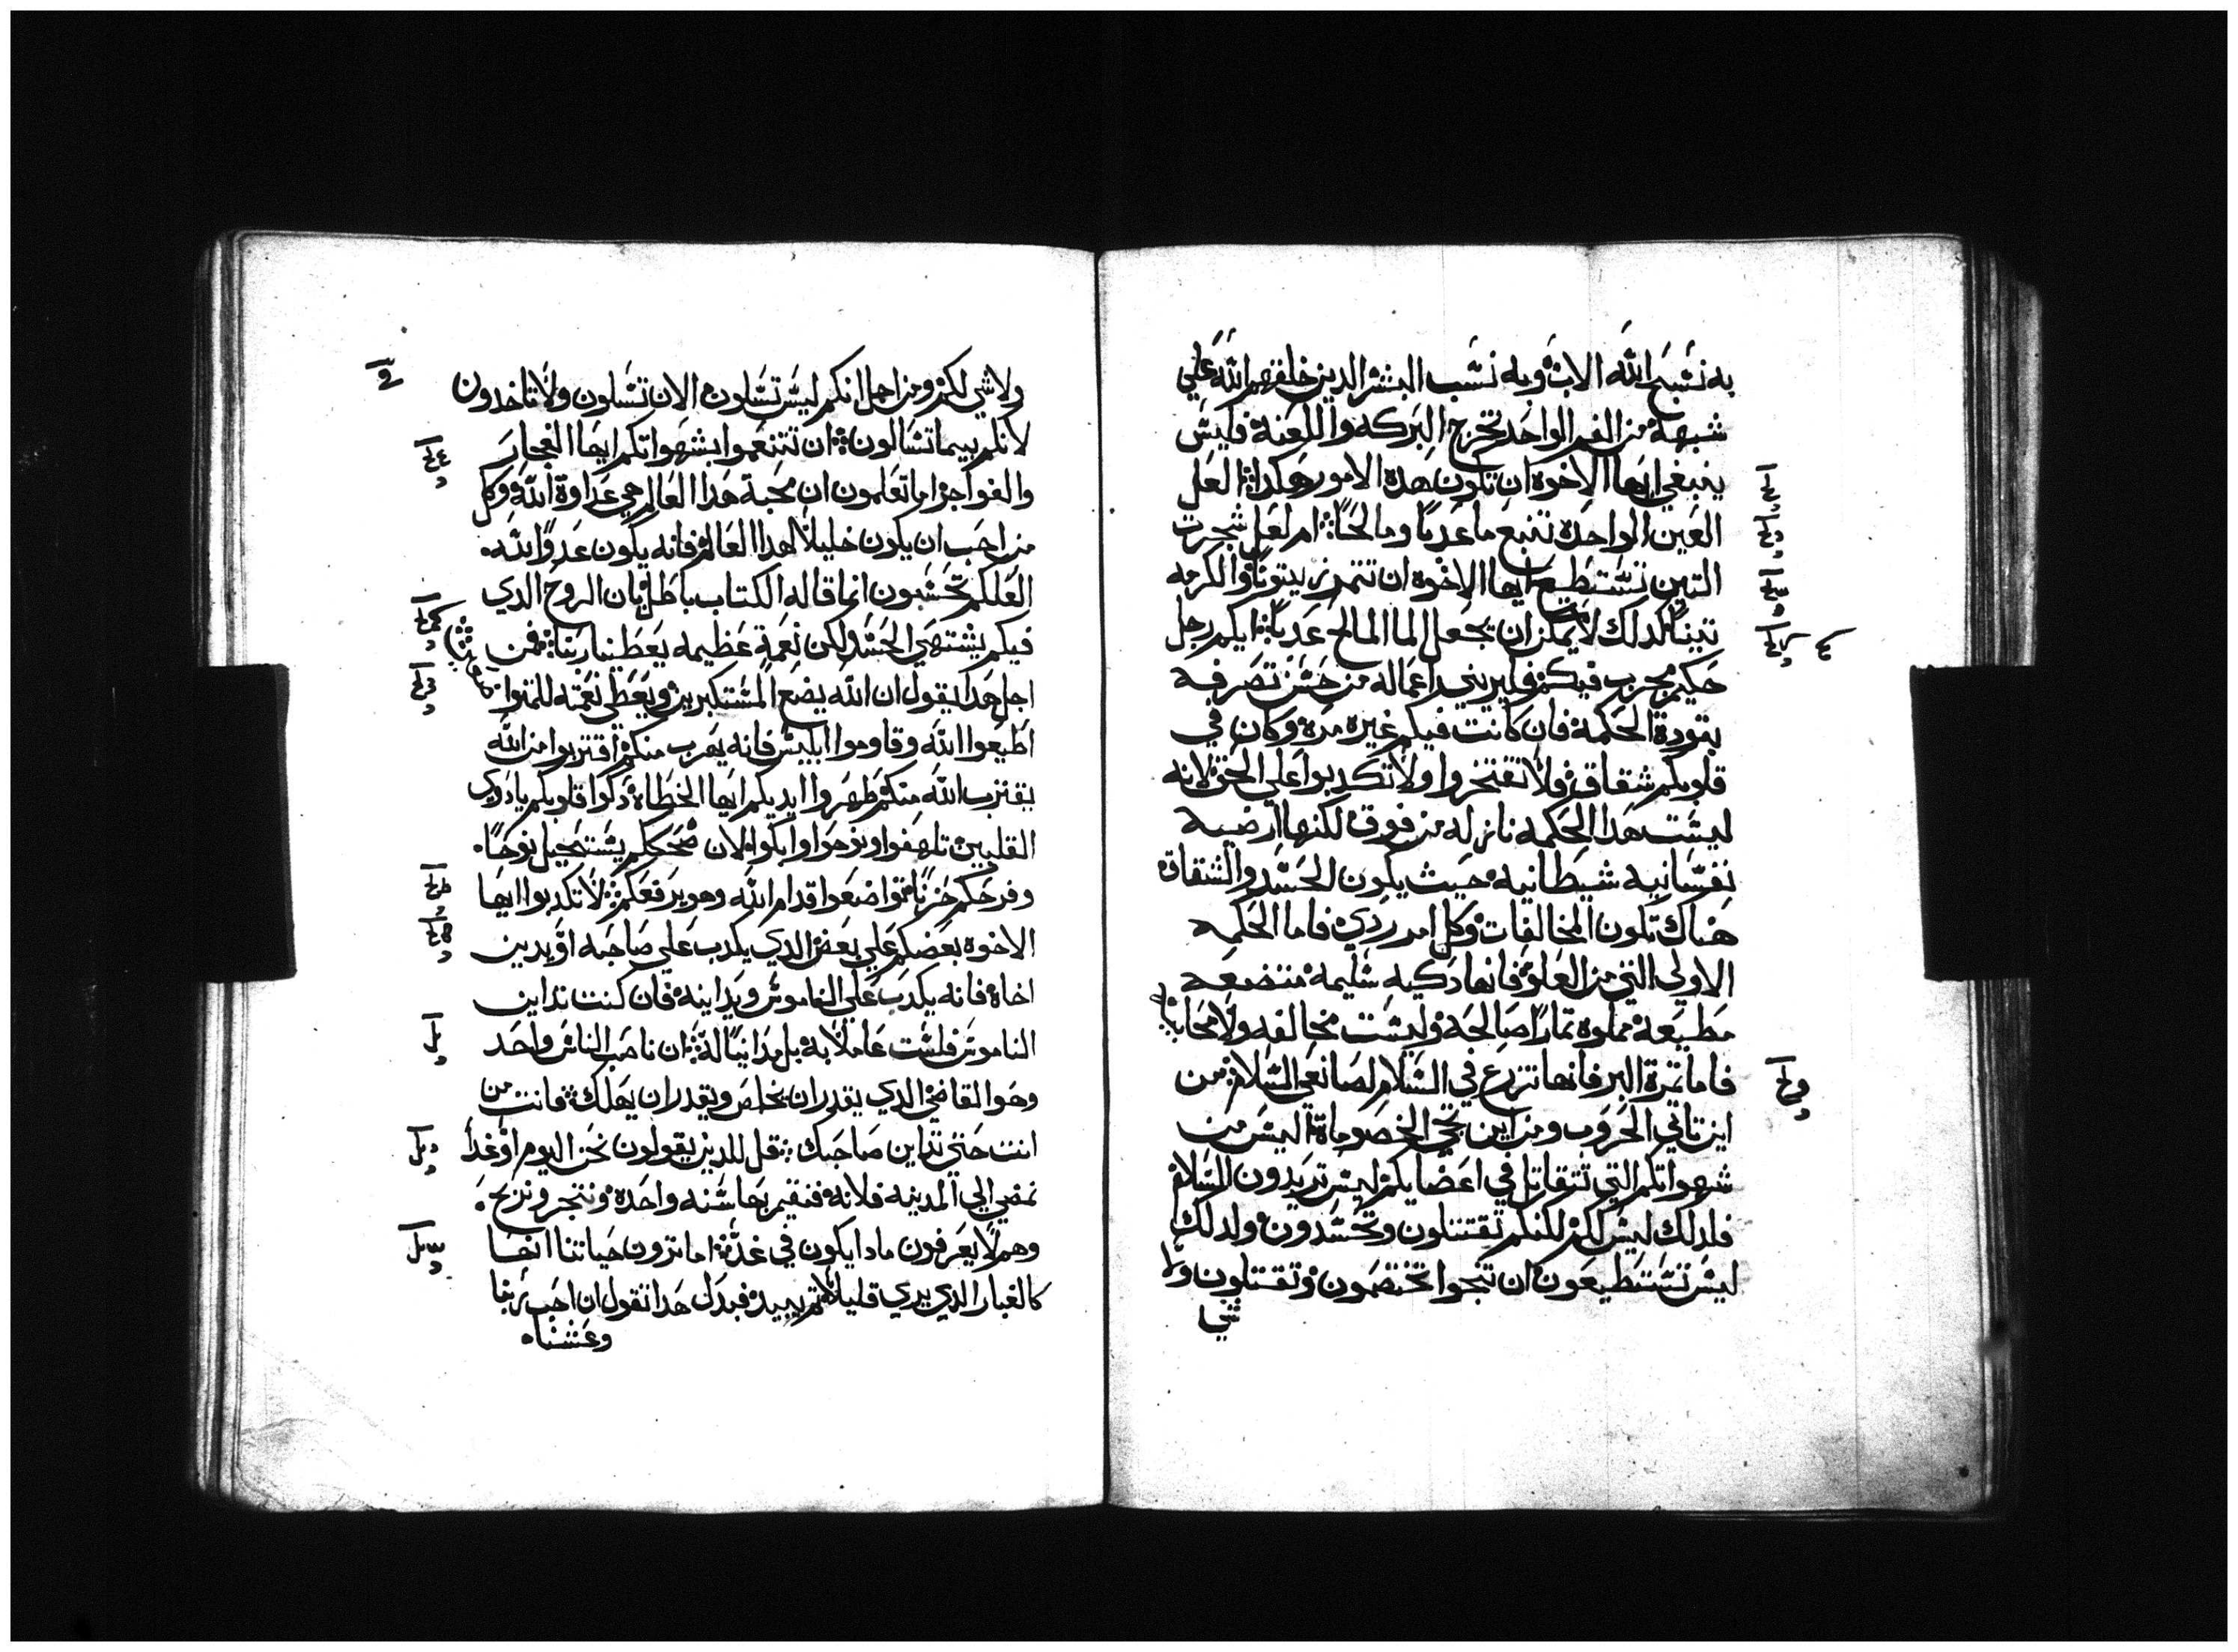 به نشبح الله الاب وبه نشب البشر الدين خلقهم الله علي
شبهه من الفم الواحد تخرج البركه واللعنة فليس
ينبغي ايها الاخوه ان تكون هده الامور هكدا العل
العين الواحده تنبع ما عدبا ومالحا ام لعل شجرت
التين تستطيع ايها الاخوه ان تتمر زيتونا والكرمه
تينا كدلك لا يمكن ان يجعل الما المالح عدبا ايكم رجل
حكيم مجرب فيكم فليريني اعماله من حسن تصرفه
بتودة الحكمة فان كانت فيكم غيره مره وكان في
قلوبكم شقاق فلا تفتخروا ولا تكدبوا علي الحق لانه
ليست هدا الحكمه نازله من فوق لكنها ارضيه
نفسانيه شيطانيه حيث يكون الحسد والشقاق
هناك تكون المخالفات وكل امر ردي فاما الحكمه
الاولي التي من العلو فانها دكيه سليمه متضعه
مطيعة مملوه تمارا صالحه وليست مخالفه ولا محابيه
فاما تمرة البر فانها تزرع في السلام لصانعي السلام من
اين تاتي الحروب ومن اين تجي الخصوماة اليس من
شهواتكم التي تتقاتل في اعضايكم ليس تريدون السلام
فلدلك ليس لكم لكنكم تقتتلون وتحسدون ولدلك
ليس تستطيعون ان تنجوا تختصمون وتقتتلون ولا
شي
ولا شي لكم ومن اجل انكم ليس تسلون الان تسلون ولا تاخدون
لانكم بيسما تسالون ان تتنعموا بشهواتكم ايها الفجار
والفواجر اما تعلمون ان محبة هدا العالم هي عداوة الله وكل
من احب ان يكون خليلا لهدا العالم فانه يكون عدوا لله
العلكم تحسبون انما قاله الكتاب باطل بان الروح الدي
فيكم يشتهي الحسد لكن نعمة عظيمه يعطينا ربنا فمن
اجل هدا يقول ان الله يضع المستكبرين ويعطي نعمته للمتواضعين
اطيعوا الله وقاوموا ابليس فانه يهرب منكم اقتربوا من الله
يقترب الله منكم طهروا ايديكم ايها الخطاه دكوا قلوبكم يا دوي
القلبين تلهفوا ونوحوا وابكوا الان ضحككم يستحيل نوحا
وفرحكم حزنا تواضعوا قدام الله وهو يرفعكم لا تكدبوا ايها
الاخوه بعضكم علي بعض الدي يكدب علي صاحبه او يدين
اخاه فانه يكدب علي الناموس ويداينه فان كنت تداين
الناموس فلست عاملا به بل مداينا له ان ناصب الناس واحد
وهو القاضي الدي يقدر ان يخلص ويقدر ان يهلك فانت من
انت حتي تداين صاحبك قل للدين يقولون نحن اليوم او غدا
نمضي الي المدينه فلانه فنقيم بها سنه واحدة ونتجر ونربح
وهم لا يعرفون مادا يكون في غد اما ترون حياتنا انها
كالغبار الدي يري قليلا تم يبيد فبدل هدا تقول ان احب ربنا
وعشنا